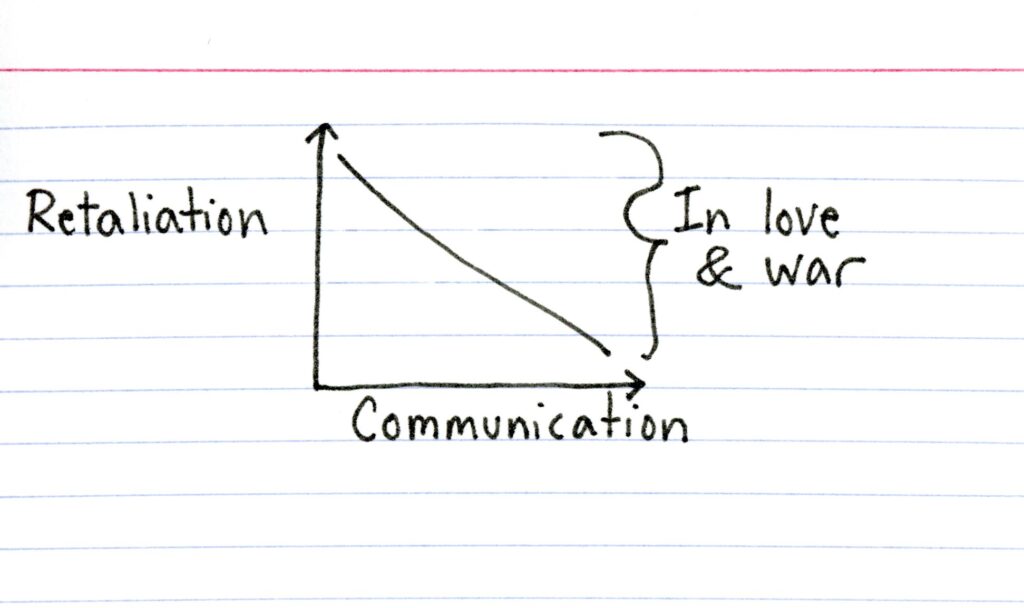 Retaliation
In love
& war
Communication